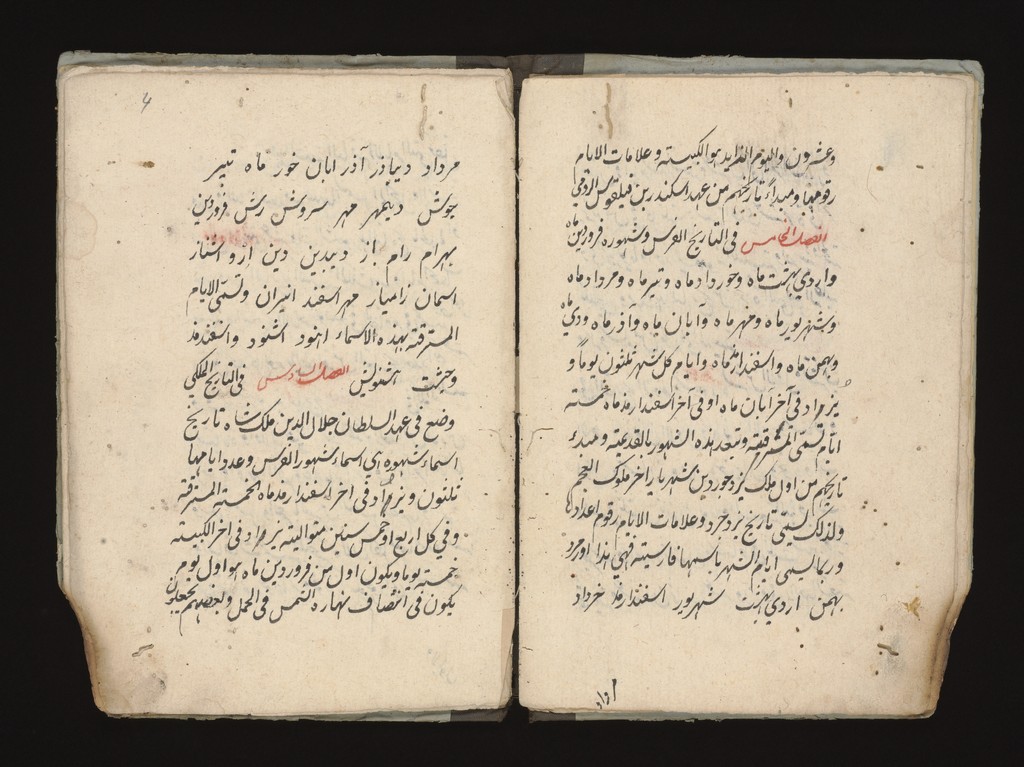 وعشرون واليوم الزايد هو الكبيسة وعلامات الايام
رقومها ومبداء تاريخهم من عهد اسكندر بن فيلقوس الرومي
الفصل الخامس فى التاريخ الفرس وشهوره فروردين ماه
واردي بهشت ماه وخورداد ماه وتير ماه ومرداد ماه
وشهريور ماه ومهر ماه وآبان ماه وآذر ماه ودي ماه
وبهمن ماه واسفندارمذ ماه وايام كل شهر ثلثون يوما و
يزاد فى آخر آبان ماه او فى آخر اسفندارمذ ماه خمسة
ايام تسمى المسترقة وتسمى هذه الشهور بالقديمة ومبدء
تاريخهم من اول ملك يزدجرد بن شهريار اخر ملوك العجم
ولذلك يسمى تاريخ يزدجرد وعلامات الايام رقوم اعدادها
وربما يسمى ايام الشهر باسمها فارسية فهي هذا اورمزد
بهمن اردي بهشت شهريور اسفندارمذ خرداد
مرداد
4
مرداد ديباذر آذر ابان خور ماه تير
جوش ديبمهر مهر سروش رش فروردين
بهرام رام باز ديبدين دين ارد اشتاز
اسمان زامياز مهر اسفند انيران وتسمى الايام
المسترقة بهذه الاسماء اهنود اشنود واسفندمذ
وحشت هشتويش الفصل السادس فى التاريخ الملكي
وضع فى عهد السلطان جلال الدين ملك شاه تاريخ
اسماء شهوره هي اسماء شهور الفرس وعدد ايامها
ثلثون ويزاد فى اخر اسفندارمذ ماه الخمسة المسترقة
وفي كل اربع او خمس سنين متوالية يزاد فى اخر الكبيسة
خمسة يوما ويكون اول من فروردين ماه هو اول يوم
يكون فى انتصاف نهاره الشمس فى الحمل وبعضهم يجعلون